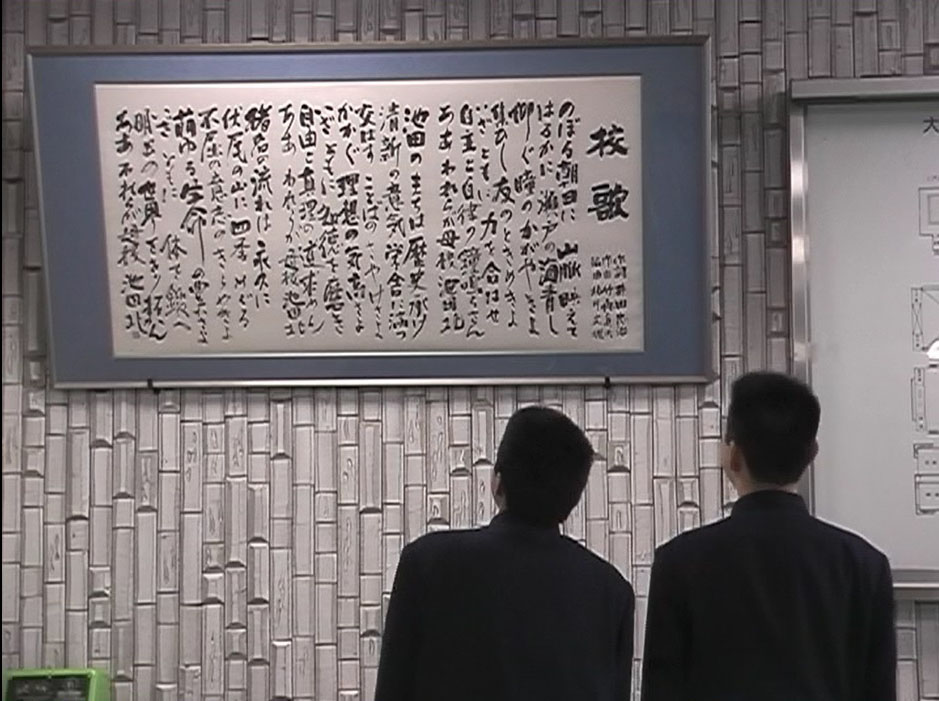 校歌
作詞 井田
作曲
編曲 北川文雄
のぼる朝日に 山脈映えて
はるかに 瀬戸の海青し
仰ぐ瞳の かがやきよ
友のときめきよ
いざともに 力を合はせ
自主と自律の鐘鳴らさん
ああ われらが母校 池田北
池田のまちは 歴史承け
清新の意気 学舎に満つ
交はす ことばの さやけさよ
かかぐ 理想の 気高さよ
いざともに 知徳を磨き
自由と真理の道求めん
ああ われらが母校 池田北
猪名の流れは 永久に
伏尾の山に 四季めぐる
不屈の意志の きらめきよ
萌ゆる生命の
いざともに 体を鍛へ
明日の世界を きり拓かん
ああ われらが母校 池田北
大